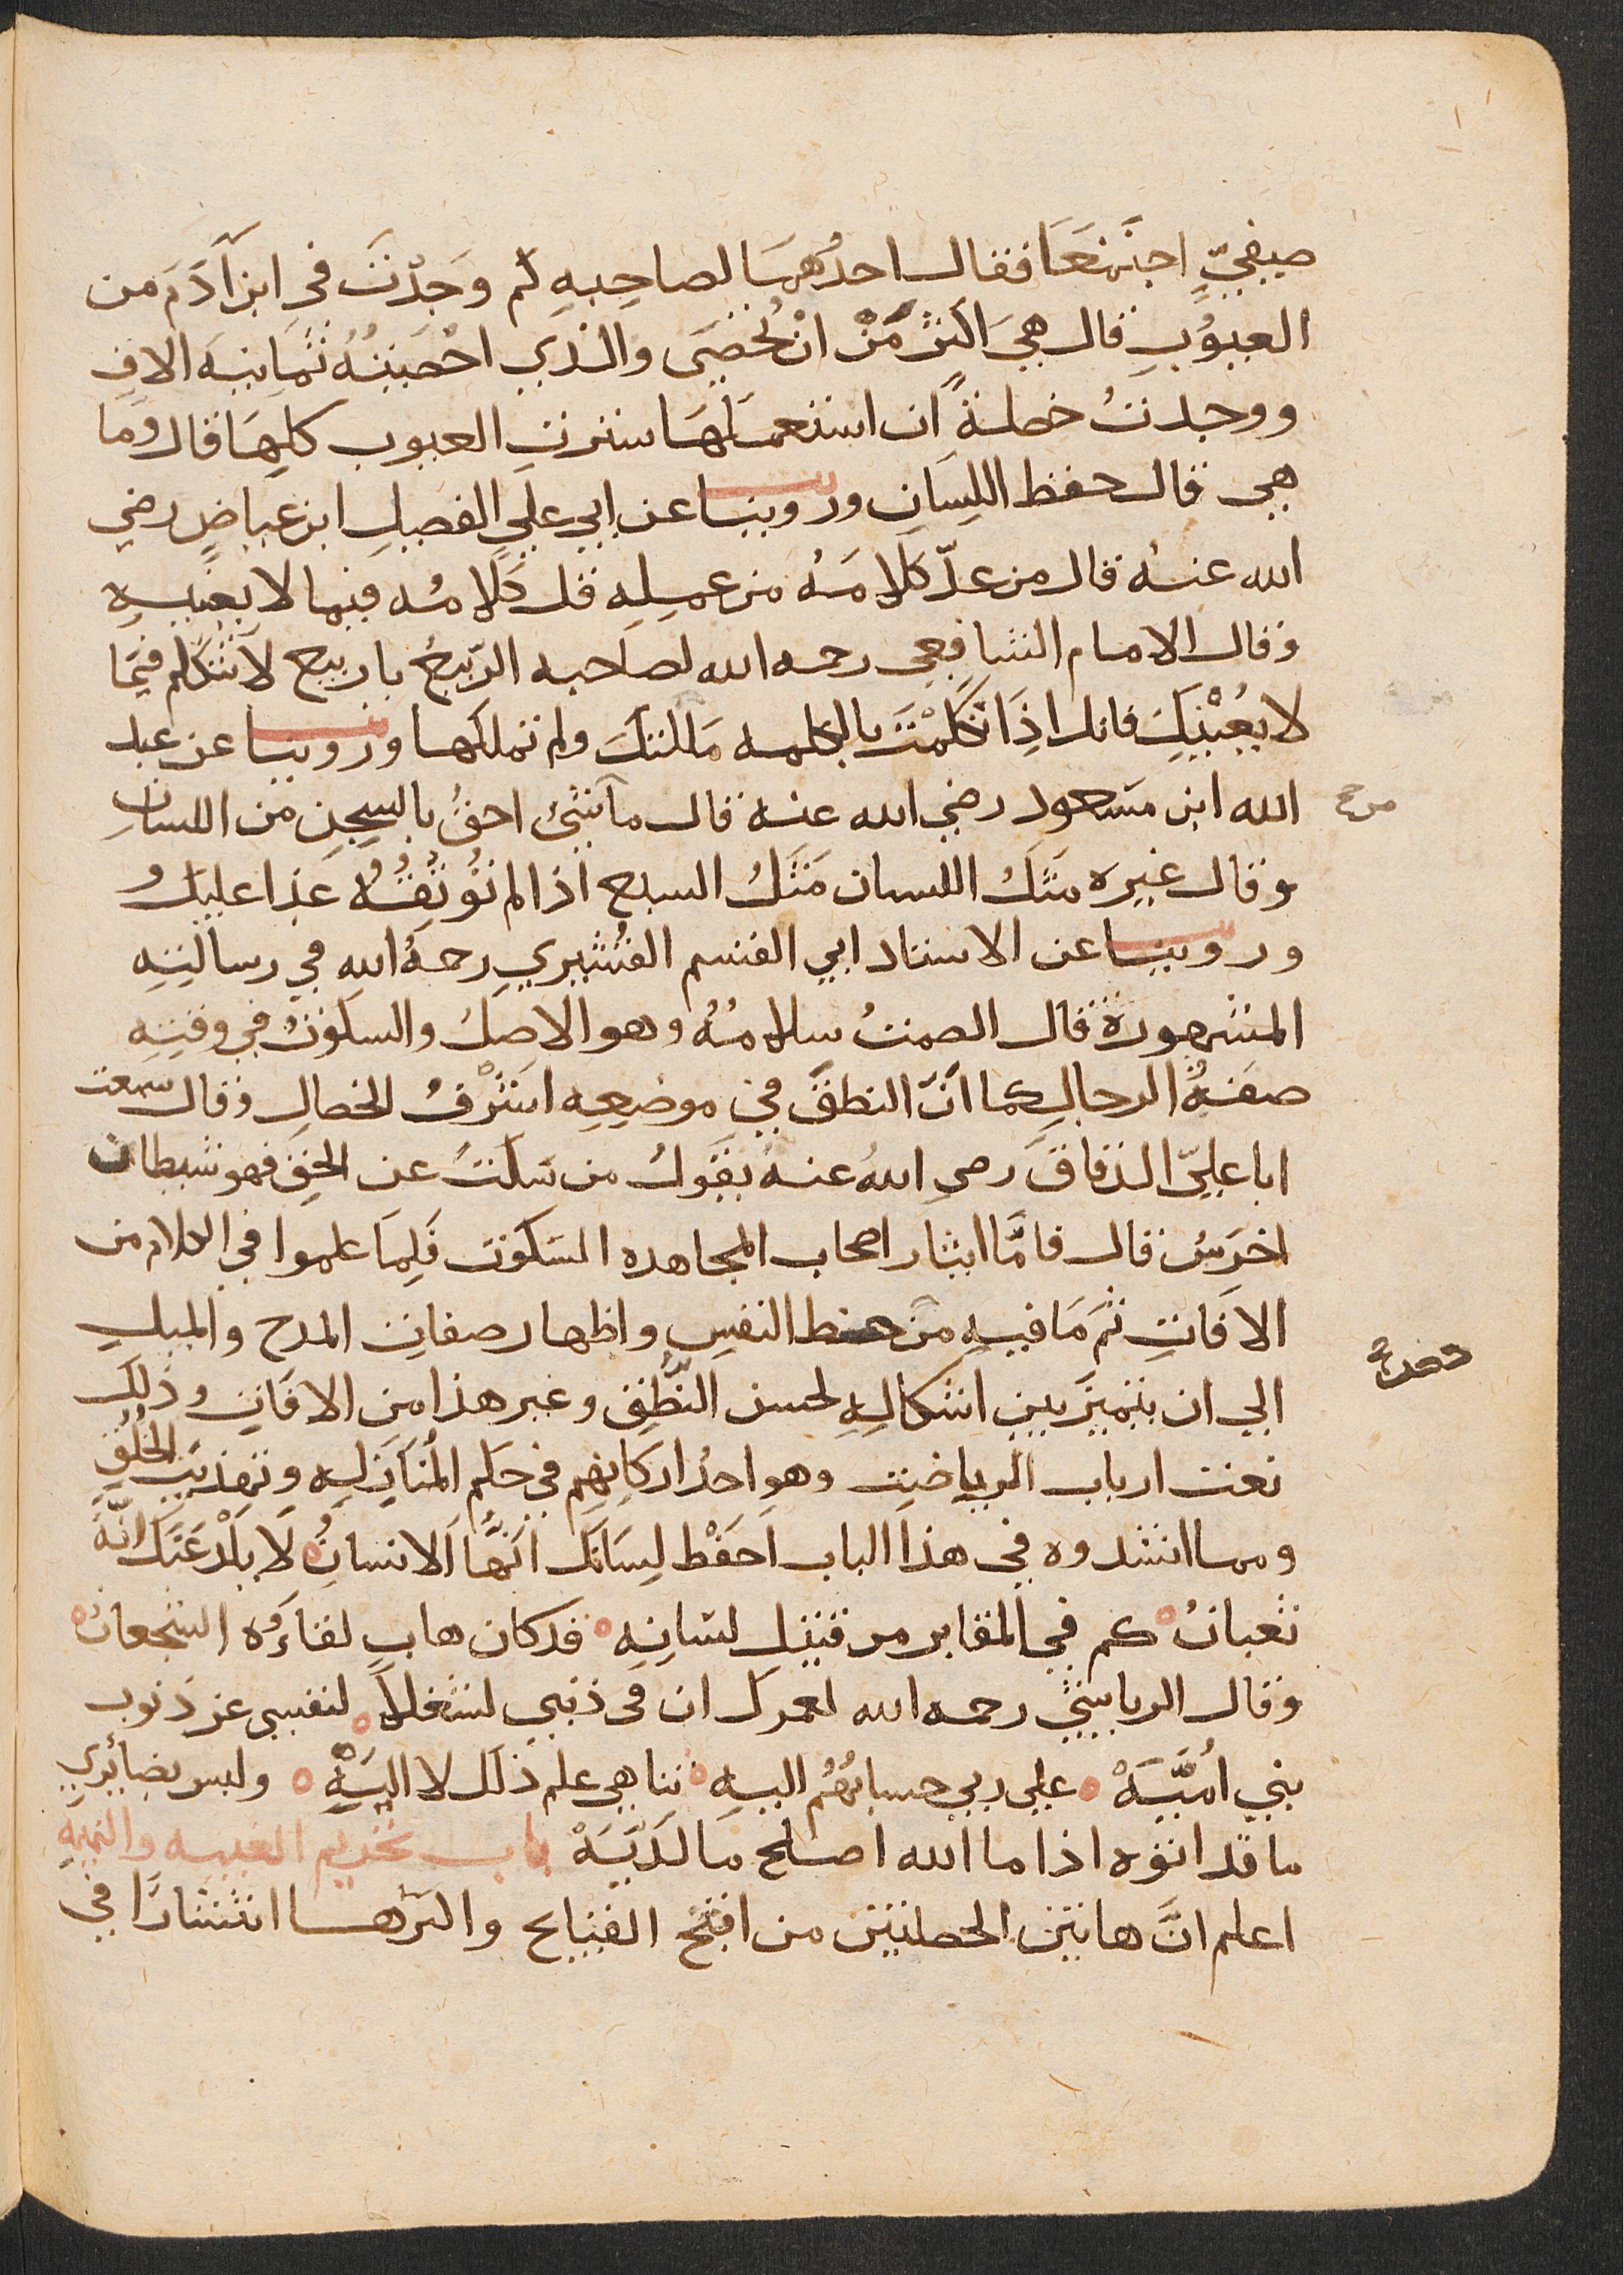 صيفيٍّ اجتمَعَا فقال احدُهمَا لصاحِبِهِ كم وَجَدْتَ في ابن آدَمَ من
العيُوُبِ قال هيَ اكثر مَنْ انْ تُحْصَى والذي احْصَيْتُهُ ثمَانيَة الافِ
ووجدتُ خصلةً ان استعملَهَا سترتِ العيوب كلهَا قال وَما
هي قال حفظ اللِسَانِ وروينا عن ابي عليٍ الفضيلِ ابن عياضٍ رضي
الله عنه قال من عدّ كلامَهُ من عمِلِهِ قل كلامُه فيما لا يعْنيِهِ
وقال الامام الشافعي رحمه الله لصاحبه الرّبيعُ يا ربيع لا تتكلم فيمَا
لا يعْنيكَ فانك اذَا تكَلمْتَ بالكلمه مَلكتكَ ولم تملكها وروينا عن عبد
الله ابن مسَعود رضي الله عنه قال ما شئ احقُ بالسِجِن من اللسانِ
وقال غيره مَثَلُ اللسان مَثَلُ السبع اذا لم تُوثقْهُ عَدا عليكَ
وروينا عن الاستاد ابي القسم القُشيري رحمهُ الله في رسالتِهِ
المشهورة قال الصمتُ سلامُهُ وهو الاصلُ والسكوتُ في وقتِهِ
صفةُ الرجالِ كما انّ النطقَ في موضِعِهِ اشرْفُ الخصالِ وقال سمعت
ابا عليّ الدقاقَ رضي اللهُ عنهُ يقوِلُ من سَكتَ عن الحقِ فهو شيطان
اخرَسُ قال فامَّا ايثار اصحاب المجاهده السَكوت فَلِمَا علموا في الكلام من
الافَاتِ ثمَ مَا فيهِ من حظ النفسِ واظهار صفاتِ المدح والميلِ
الي ان يتميز بين اشكالِهِ لحسن النُّطْقِ وغير هذا من الافَاتِ وذَلِك
نعت ارباب الرياضت وهو احدُ اركانهِم في حكم المُنَازَلِهِ وتهذيبِ الخلُقِ
ومما انشدوه في هذا الباب احَفَظْ لِسَانَك ايَهَّا الانسانُ لَا يَلْدغَنَّكَ انَّهُ
ثعبانُ كم في المقابر من قتيل لسَانِهِ قد كان هابِ لقاءَهُ الشجعانُ
وقال الرياشي رحمه الله لعمرك ان في ذنبي لشغلاً لنفسي عن ذنوب
بني أُميَّهْ علي ربي حسابُهُمُ اليهِ تناهي علم ذلك لا اليَّهْ وليس بضائري
ما قد اتوه اذا ما الله اصلح ما لدَيَّهْ باب تحريم الغيبه والنميه
اعلم انَّ هاتين الخصلتين من اقبح القبايح واكثرها انتشارًا في